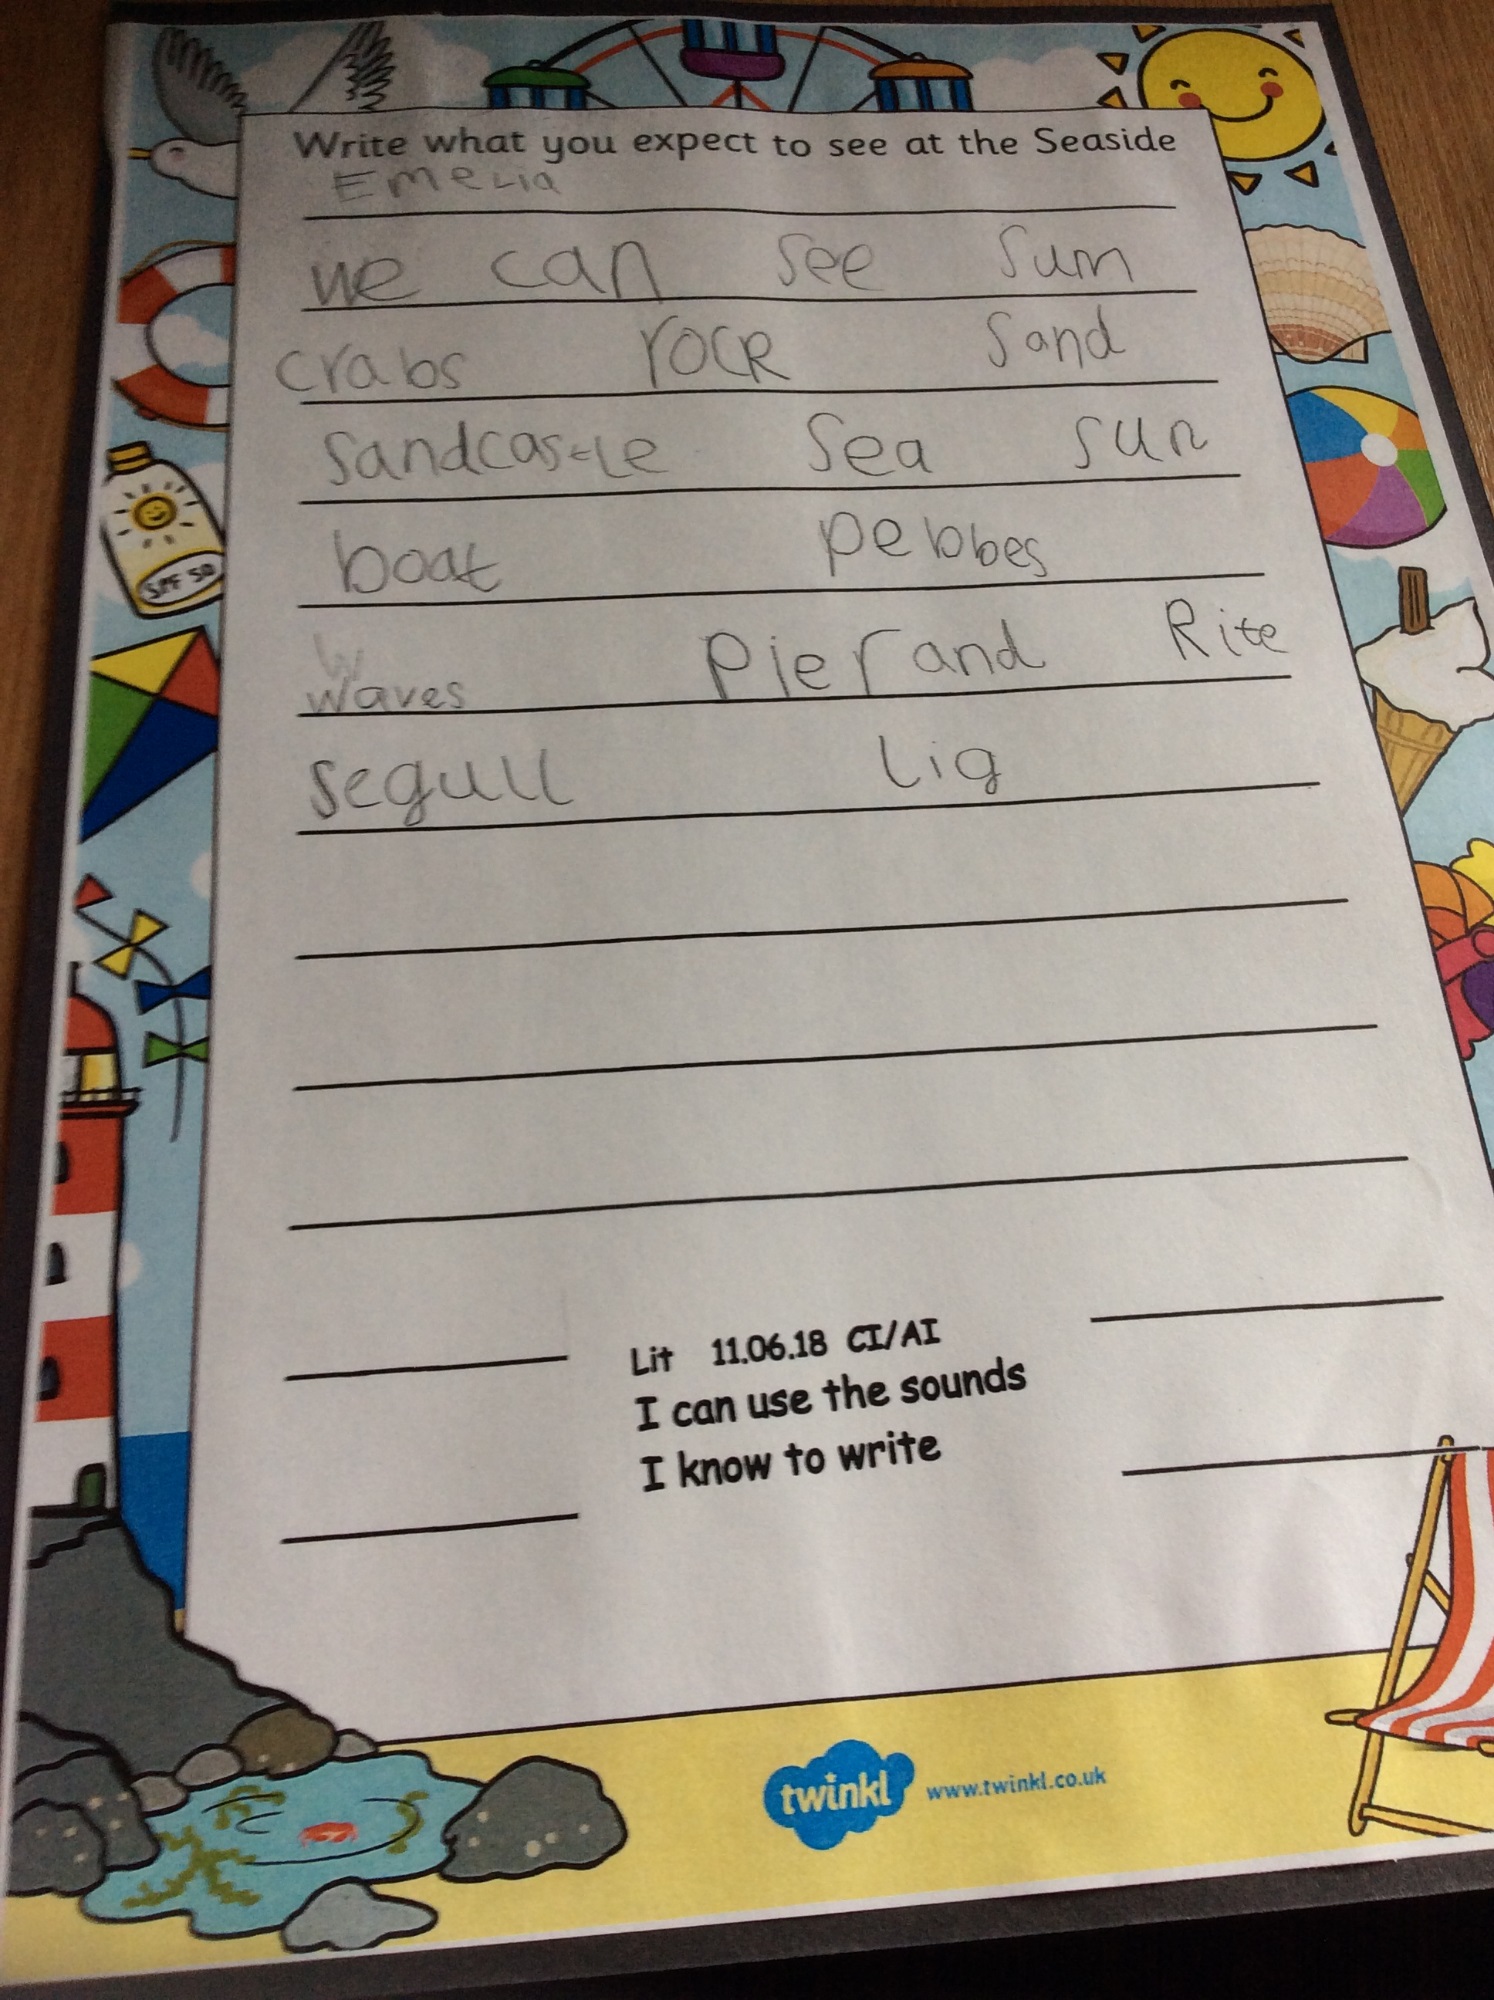 Write what you expect to see at the Seaside
Emelia
we can see sum
crabs rock sand
sandcastle sea sun
boat pebbes
w
waves Pier and Rite
segull lig
SPF 50
Lit 11.06.18 CI/AI
I can use the sounds
I know to write
twinkl www.twinkl.co.uk